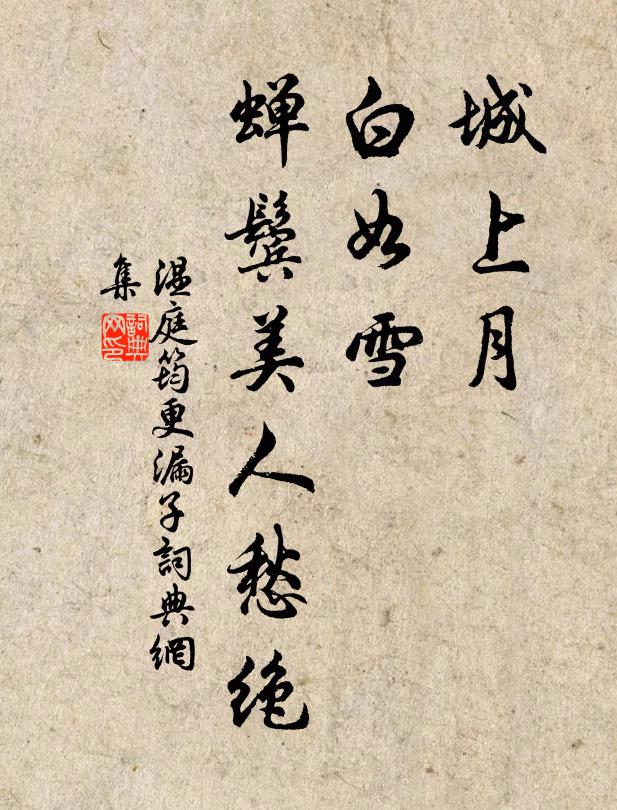 城上月
白如雪
蝉鬓美人愁绝
温庭筠更漏子詞典網
集
詞典
网印